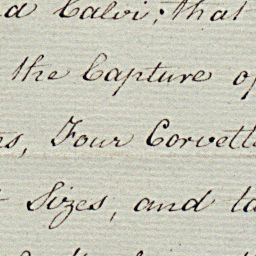 Calvi; that
the Capture of
Four Corvett
Sizes, and